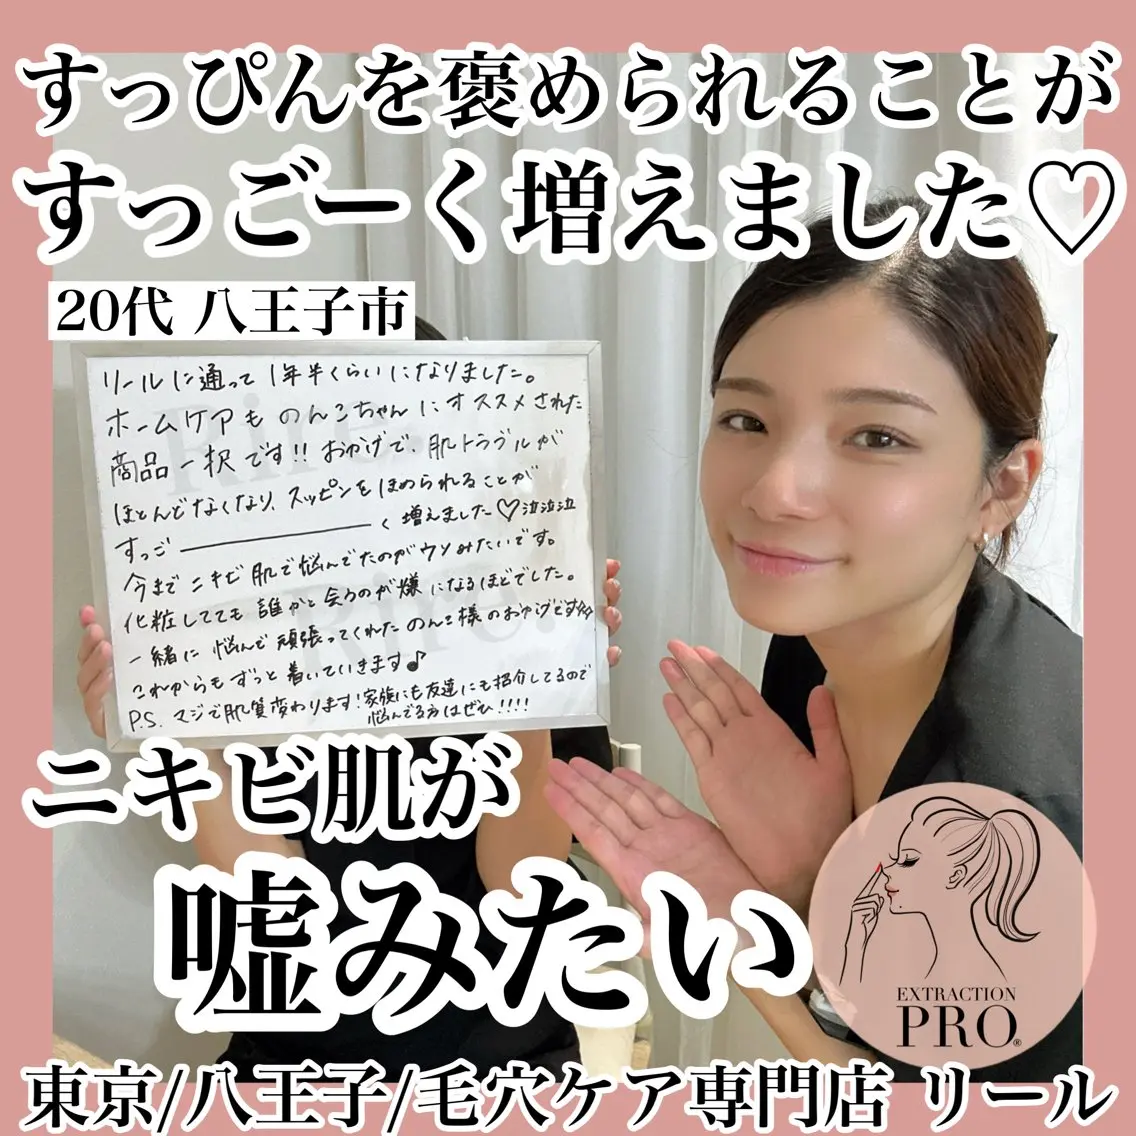 すっぴんを褒められることが
すっごーく増えました♡
20代 八王子市
リールに通って1年半くらいになりました。
ホームケアものんこちゃんにオススメされた
商品一択です!! おかげで、肌トラブルが
ほとんどなくなり、スッピンをほめられることが
すっごーーーく増えました♡泣泣泣
今までニキビ肌で悩んでたのがウソみたいです。
化粧してても誰かと会うのが嫌になるほどでした。
一緒に悩んで頑張ってくれたのんこ様のおかげです
これからもずっと着いていきます♪
P.S. マジで肌質変わります!家族にも友達にも紹介してるので
悩んでる方はぜひ!!!!
Rire.
Rire.
ニキビ肌が
嘘みたい
EXTRACTION
PRO®
東京/八王子/毛穴ケア専門店 リール